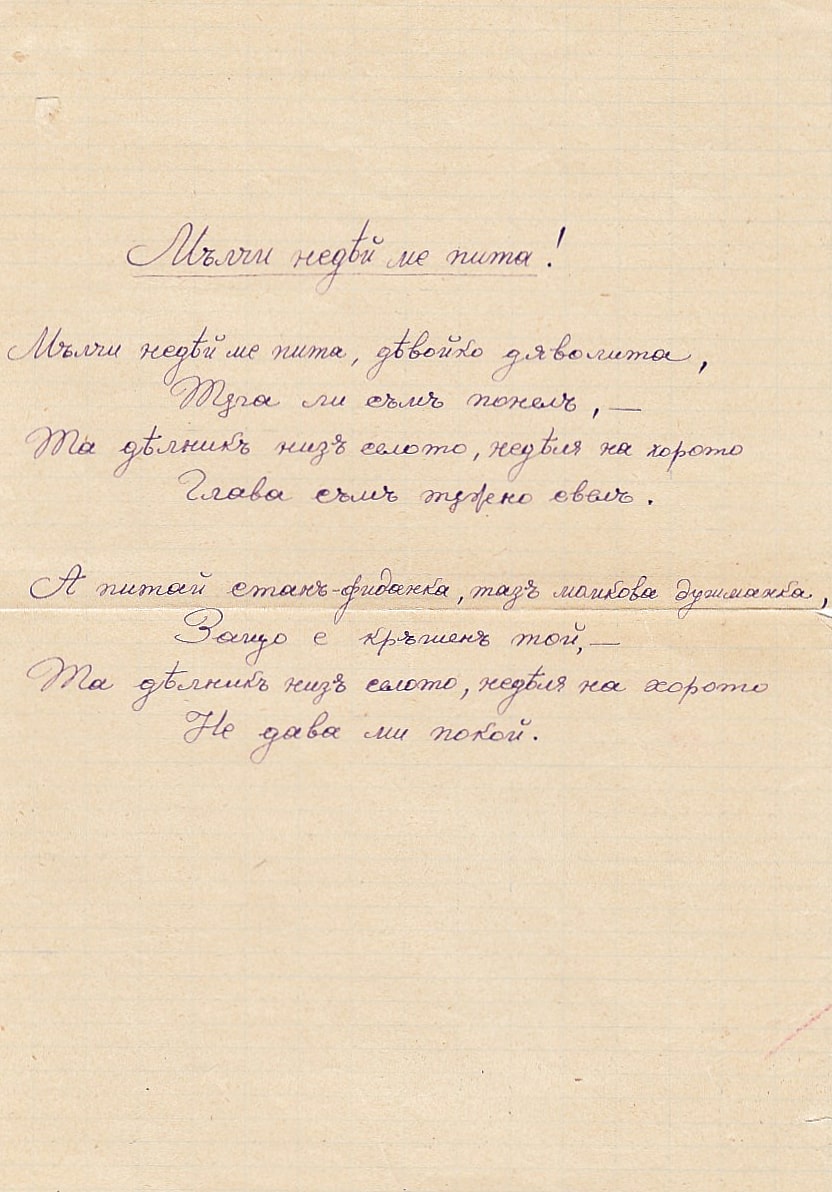 Мълчи недѣй ме пита!
Мълчи недѣй ме пита, дѣвойко дяволита,
Тѫга ли съмъ поелъ, —
Та дѣлникъ низъ селото, недѣля на хорото
Глава съмъ тѫжно свелъ.
А питай станъ-фиданка, тазъ маикова душманка,
Защо е кръшенъ той, —
Та дѣлникъ низъ селото, недѣля на хорото
Не дава ми покой.